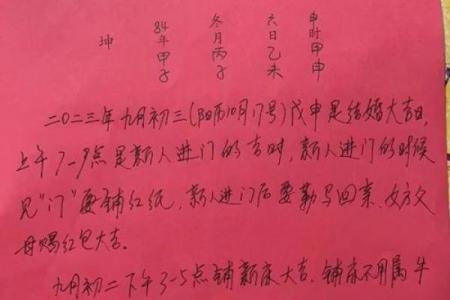 坤
84年甲子
冬月丙子
六日乙未
申时甲申
二〇二三年九月初三(阳历10月17号)戊申是结婚大吉日,
上午7-9点是新人进门的吉时,新人进门的时候
见"门"要铺红纸,新人进门后要勒马回,女方父
母赐红包大吉。
九月初二下午3-5点铺新床大吉,铺床不用属牛